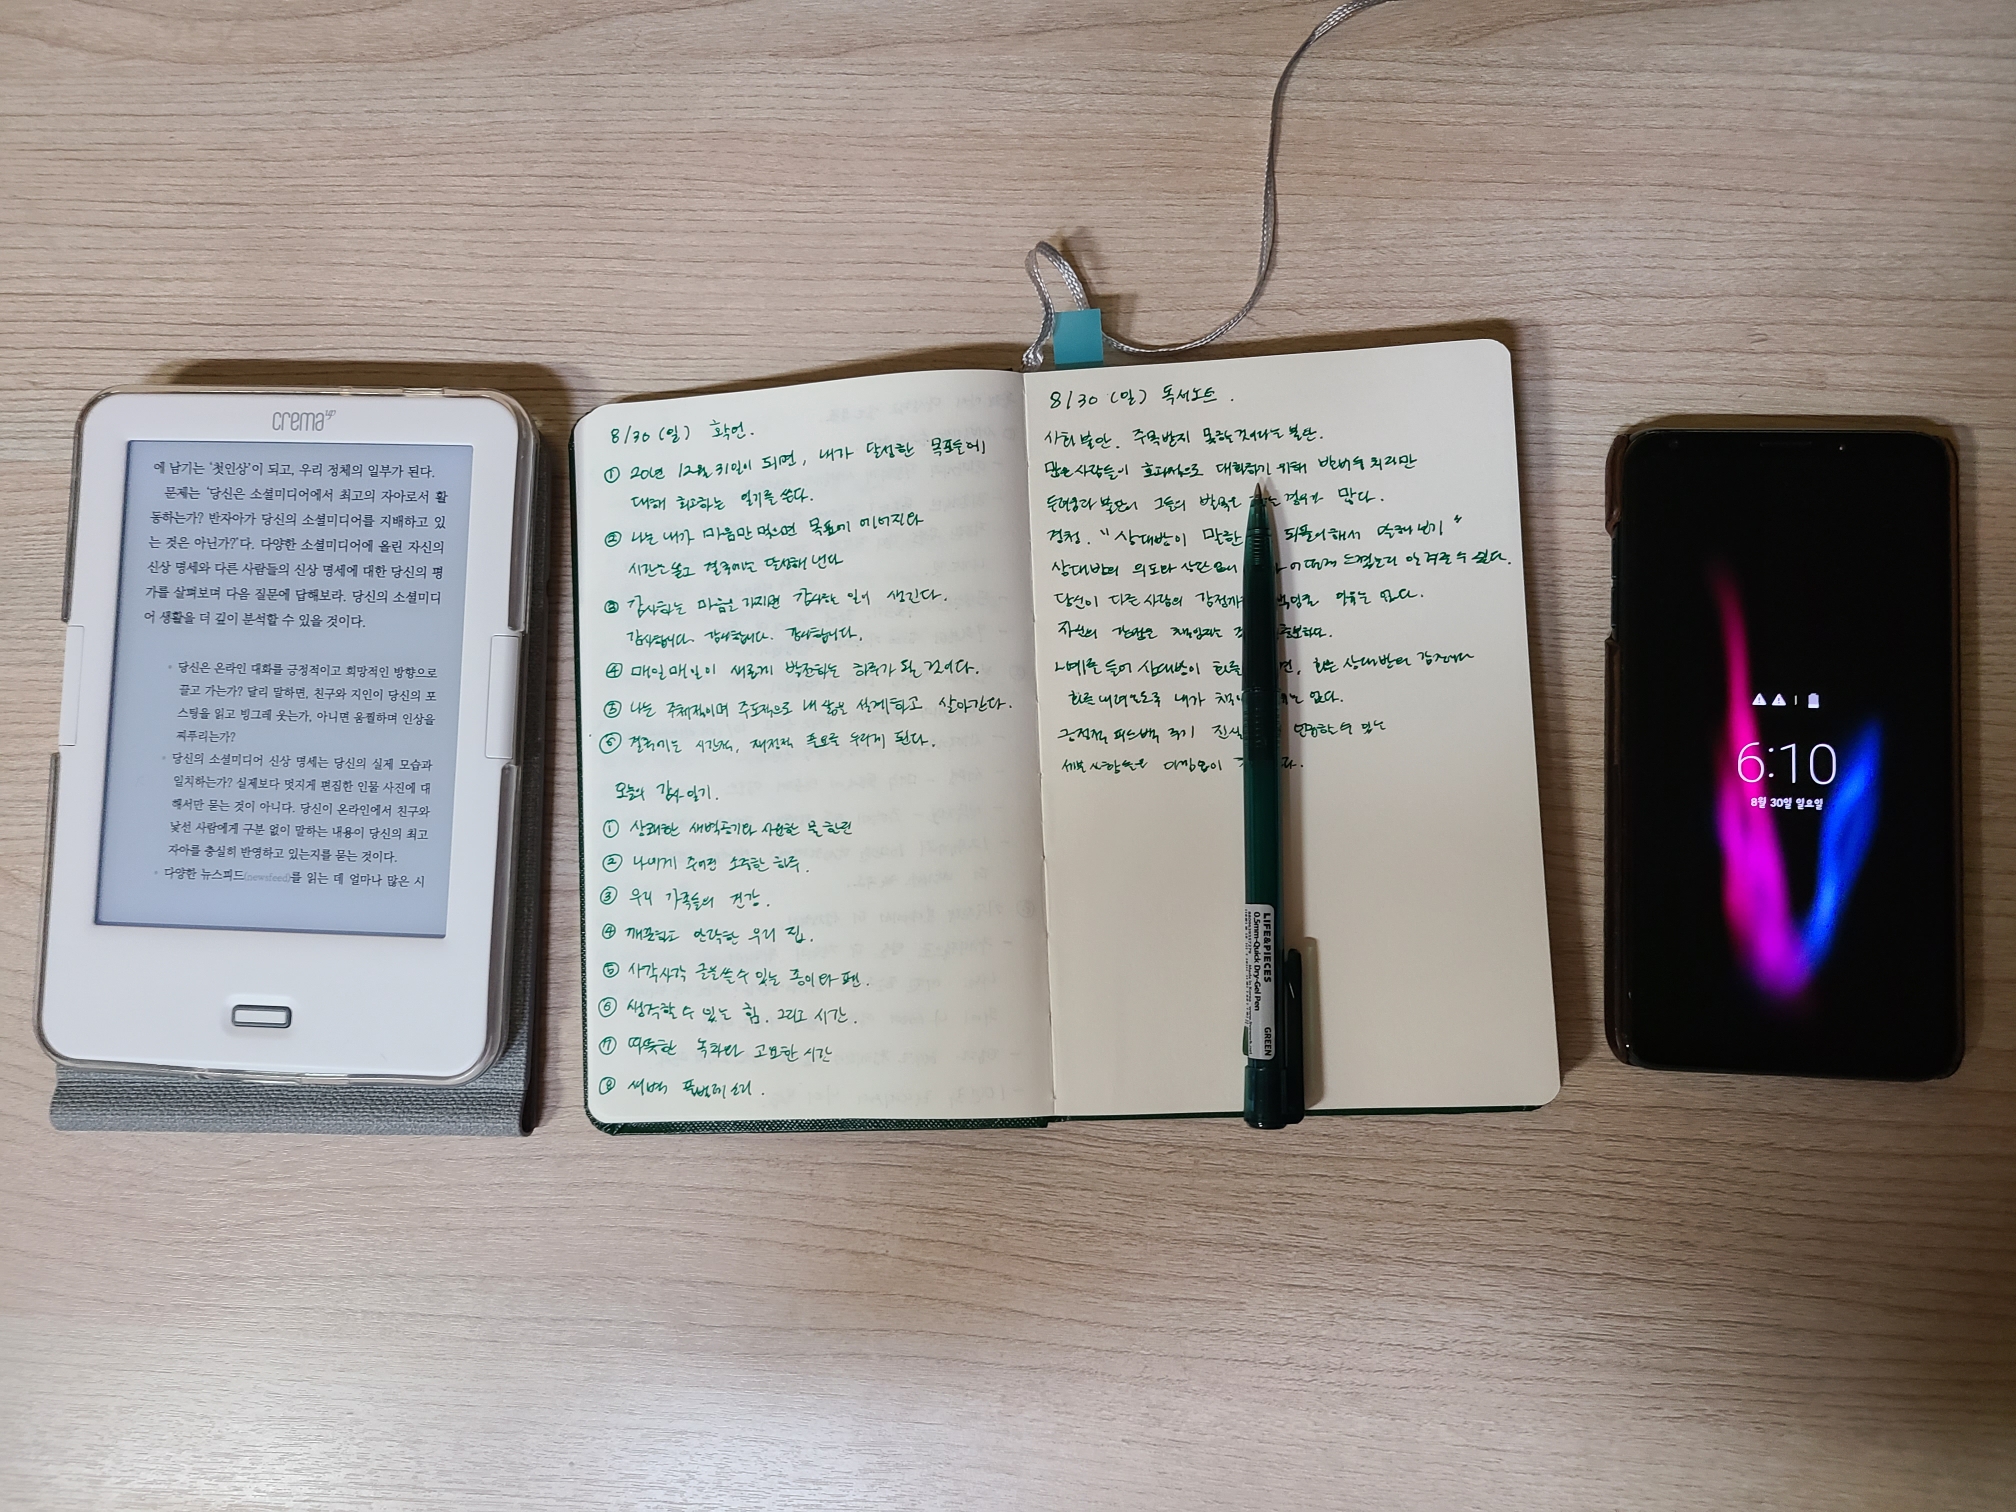 crema up
에 남기는 '첫인상'이 되고, 우리 정체의 일부가 된다.
문제는 '당신은 소셜미디어에서 최고의 자아로서 활
동하는가? 반자아가 당신의 소셜미디어를 지배하고 있
는 것은 아닌가?'다. 다양한 소셜미디어에 올린 자신의
신상 명세와 다른 사람들의 신상 명세에 대한 당신의 평
가를 살펴보며 다음 질문에 답해보라. 당신의 소셜미디
어 생활을 더 깊이 분석할 수 있을 것이다.
• 당신은 온라인 대화를 긍정적이고 희망적인 방향으로
끌고 가는가? 달리 말하면, 친구와 지인이 당신의 포
스팅을 읽고 빙그레 웃는가, 아니면 움찔하며 인상을
찌푸리는가?
• 당신의 소셜미디어 신상 명세는 당신의 실제 모습과
일치하는가? 실제보다 멋지게 편집한 인물 사진에 대
해서만 묻는 것이 아니다. 당신이 온라인에서 친구와
낯선 사람에게 구분 없이 말하는 내용이 당신의 최고
자아를 충실히 반영하고 있는지를 묻는 것이다.
• 다양한 뉴스피드(newsfeed)를 읽는 데 얼마나 많은 시
8/30 (일) 확언.
① 20년 12월 31일이 되면, 내가 달성한 목표들에
대해 회고하는 일기를 쓴다.
② 나는 내가 마음만 먹으면 목표에
결국에는 달성해 낸다
③ 감사하는 마음을 가지면 감사한 일이 생긴다.
감사합니다. 감사합니다. 감사합니다.
④ 매일매일이 새롭게 발전하는 하루가 될 것이다.
⑤ 나는 주체적이며 주도적으로 내 삶을 설계하고 살아간다.
⑥ 결국에는 시간적, 재정적 풍요를 누리게 된다.
오늘의 감사일기.
① 상쾌한 새벽공기와 시원한 물 한잔
② 나에게 주어진 소중한 하루.
③ 우리 가족들의 건강.
④ 깨끗하고 안락한 우리 집.
⑤ 사각사각 글을 쓸 수 있는 종이와 펜.
⑥ 생각할 수 있는 힘. 그리고 시간.
⑦ 따뜻한 녹차와 고요한 시간
⑧ 새벽 풀벌레 소리.
8/30 (일) 독서노트.
사회 불안. 주목받지 못하는 것이라는 불안.
많은 사람들이 효과적으로 대화하기 위해 발버둥 치지만
두려움과 불안이 그들의 발목을 경우가 많다.
경청. "상대방이 말한 되풀이해서 말해 보기"
상대방의 의도와 어떻게 느꼈는지 알 수 있다.
당신이 다른 사람의 감정까지 이유는 없다.
자신의 감정만 책임지는 충분하다.
예를 들어 상대방이 화를 화는 상대방의 감정이다
화를 내려놓도록 내가 없다.
긍정적 피드백 주기 인용할 수 있는
LIFE&PIECES
0.5mm-Quick Dry-Gel Pen
GREEN
6:10
8월 30일 일요일